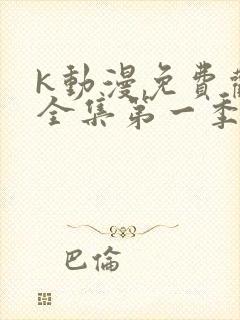 K動漫免費
全集第一季
巴倫